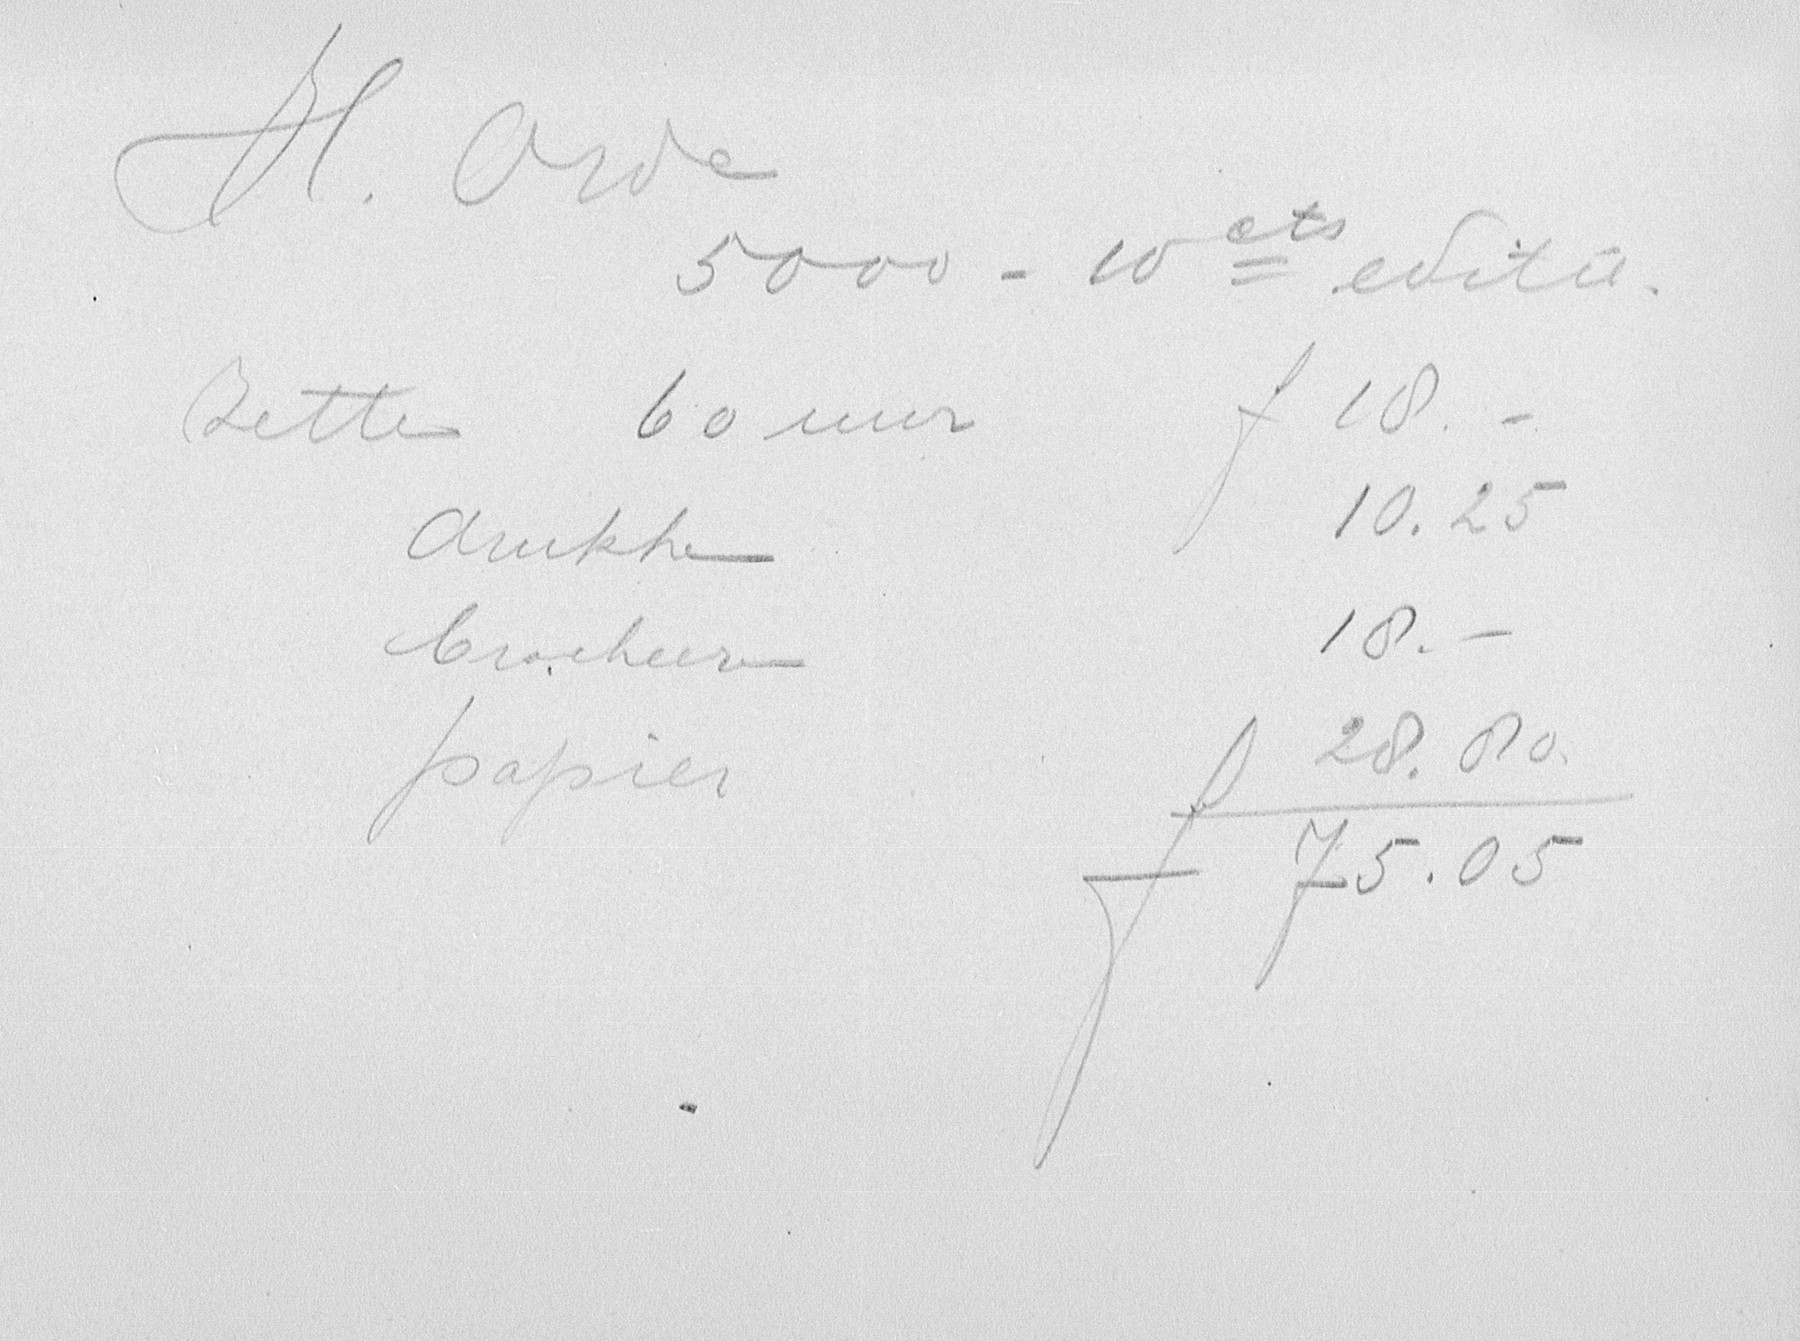 H. Orde
5000 - 10 cts editie.
Zetten 60 uur f 18.-
drukken 10.25
brocheeren 18.-
papier 28.80
f 75.05